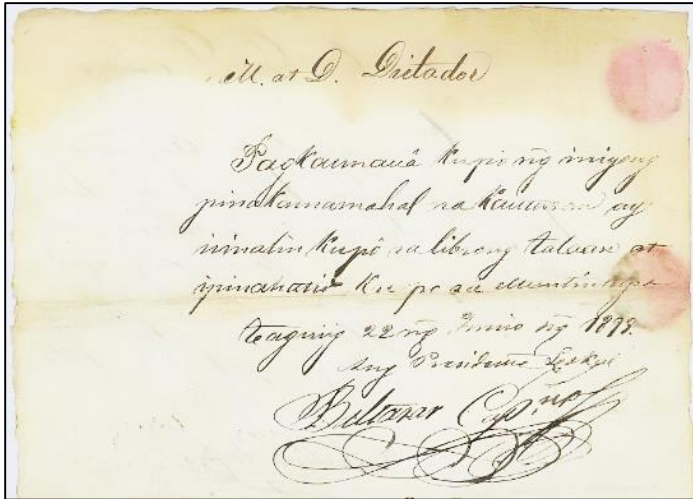 M. at D. Dictador
Pagkaunauà kupo ng inyong
pinakamamahal na kautusan ay
inialin kupò sa librong talaan at
ipinahatid ku po sa Muntinlupa
Taguiig 22 ng Junio ng 1898.
Ang Presidente
Baltazar